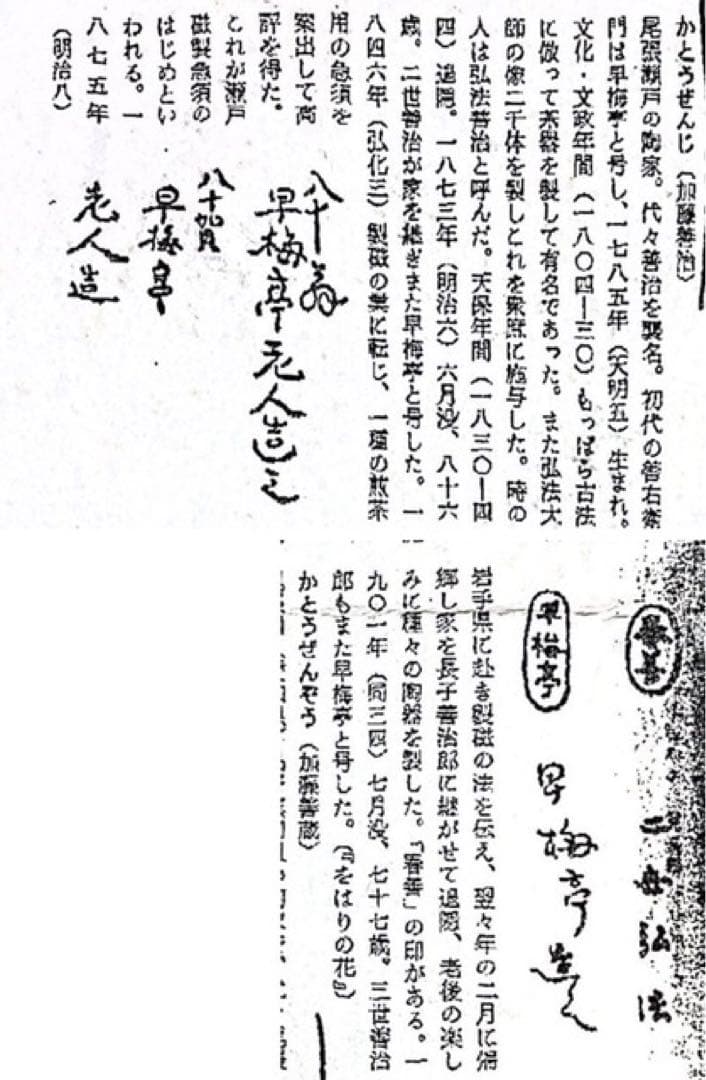 かとうぜんじ〔加藤善治〕
尾張瀬戸の陶家。代々善治を襲名。初代の善右衛
門は早梅亭と号し、一七八五年（天明五）生まれ。
文化・文政年間（一八〇四―三〇）もっぱら古法
に倣って茶器を製して有名であった。また弘法大
師の像二千体を製しこれを衆庶に施与した。時の
人は弘法善治と呼んだ。天保年間（一八三〇―四
四）退隠。一八七三年（明治六）六月没、八十六
歳。二世善治が家を継ぎまた早梅亭と号した。一
八四六年（弘化三）製磁の業に転じ、一種の煎茶
用の急須を
案出して高
評を得た。
これが瀬戸
磁製急須の
はじめとい
われる。一
八七五年
（明治八）
八十翁
早梅亭老人造之
八十賀
早梅亭
老人造
二世弘法
早梅亭
早梅亭造之
岩手県に赴き製磁の法を伝え、翌々年の二月に帰
郷し家を長子善治郎に継がせて退隠、老後の楽し
みに種々の陶器を製した。「春善」の印がある。一
九〇一年（同三四）七月没、七十七歳。三世善治
郎もまた早梅亭と号した。（『をはりの花』）
かとうぜんぞう〔加藤善蔵〕